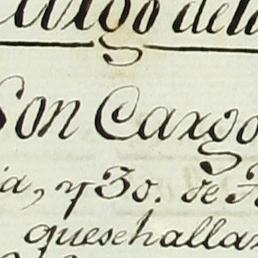 Cargo dela
Son Cargo
ia, y 30. de
quesehallar